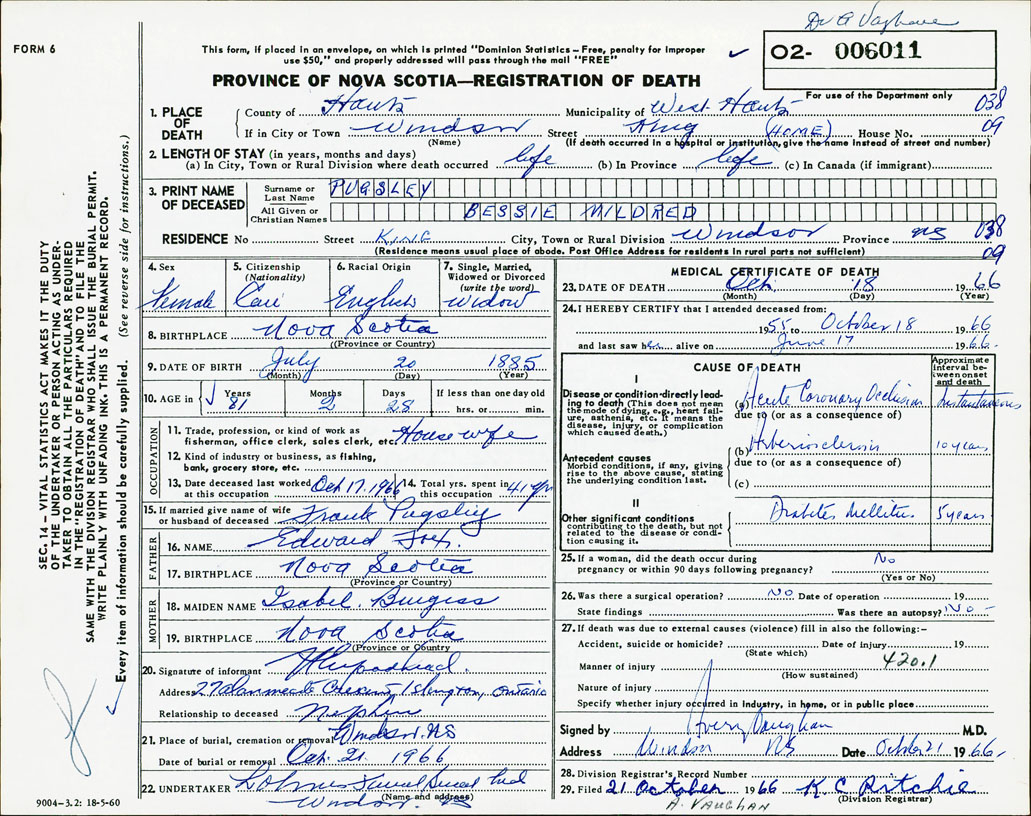 Dr A Vaughan
FORM 6
This form, if placed in an envelope, on which is printed "Dominion Statistics – Free, penalty for improper
use $50," and properly addressed will pass through the mail "FREE"
O2- 006011
PROVINCE OF NOVA SCOTIA—REGISTRATION OF DEATH
For use of the Department only
1. PLACE OF DEATH
County of Hants Municipality of West Hants 038
If in City or Town Windsor Street King (HOME) House No. 09
(Name) (If death occurred in a hospital or institution, give the name instead of street and number)
2. LENGTH OF STAY (in years, months and days)
(a) In City, Town or Rural Division where death occurred life (b) In Province life (c) In Canada (if immigrant)
3. PRINT NAME OF DECEASED
Surname or Last Name PUGSLEY
All Given or Christian Names BESSIE MILDRED
RESIDENCE No Street KING City, Town or Rural Division Windsor Province NS 038
(Residence means usual place of abode. Post Office Address for residents in rural parts not sufficient) 09
4. Sex Female
5. Citizenship (Nationality) Can
6. Racial Origin English
7. Single, Married, Widowed or Divorced (write the word) Widow
8. BIRTHPLACE Nova Scotia
(Province or Country)
9. DATE OF BIRTH July 20 1885
(Month) (Day) (Year)
10. AGE in Years 81 Months 2 Days 28 If less than one day old hrs. or min.
OCCUPATION
11. Trade, profession, or kind of work as
fisherman, office clerk, sales clerk, etc. Housewife
12. Kind of industry or business, as fishing,
bank, grocery store, etc.
13. Date deceased last worked at this occupation Oct 17. 1966
14. Total yrs. spent in this occupation 41 yrs
15. If married give name of wife
or husband of deceased Frank Pugsley
FATHER
16. NAME Edward
17. BIRTHPLACE Nova Scotia
(Province or Country)
MOTHER
18. MAIDEN NAME Isabel Burgess
19. BIRTHPLACE Nova Scotia
(Province or Country)
20. Signature of informant
Address 27 Crescent, Islington, Ontario
Relationship to deceased Nephew
21. Place of burial, cremation or removal Windsor. NS
Date of burial or removal Oct. 21. 1966
22. UNDERTAKER
(Name and address)
Windsor. NS
MEDICAL CERTIFICATE OF DEATH
23. DATE OF DEATH Oct. 18 1966
(Month) (Day) (Year)
24. I HEREBY CERTIFY that I attended deceased from:
1955 to October 18 1966
and last saw her alive on June 17 1966.
CAUSE OF DEATH
Approximate interval between onset and death
I
Disease or condition directly leading to death (This does not mean the mode of dying, e.g., heart failure, asthenia, etc. It means the disease, injury, or complication which caused death.)
(a) Acute Coronary Occlusion Instantaneous
due to (or as a consequence of)
Antecedent causes
Morbid conditions, if any, giving rise to the above cause, stating the underlying condition last.
(b) Arteriosclerosis 10 years
due to (or as a consequence of)
(c)
II
Other significant conditions contributing to the death, but not related to the disease or condition causing it.
Diabetes Mellitus 5 years
25. If a woman, did the death occur during
pregnancy or within 90 days following pregnancy? No
(Yes or No)
26. Was there a surgical operation? NO Date of operation 19
State findings Was there an autopsy? No
27. If death was due to external causes (violence) fill in also the following:–
Accident, suicide or homicide? Date of injury 19
(State which)
Manner of injury 420.1
(How sustained)
Nature of injury
Specify whether injury occurred in Industry, in home, or in public place
Signed by Avery Vaughan M.D.
Address Windsor NS Date October 21 1966.
28. Division Registrar's Record Number
29. Filed 21 October 1966 K C Ritchie
A. VAUGHAN (Division Registrar)
9004–3.2: 18-5-60
SEC. 14 – VITAL STATISTICS ACT MAKES IT THE DUTY
OF THE UNDERTAKER OR PERSON ACTING AS UNDER-
TAKER TO OBTAIN ALL THE PARTICULARS REQUIRED
IN THE "REGISTRATION OF DEATH" AND TO FILE THE
SAME WITH THE DIVISION REGISTRAR WHO SHALL ISSUE THE BURIAL PERMIT.
WRITE PLAINLY WITH UNFADING INK. THIS IS A PERMANENT RECORD.
Every item of information should be carefully supplied. (See reverse side for instructions.)